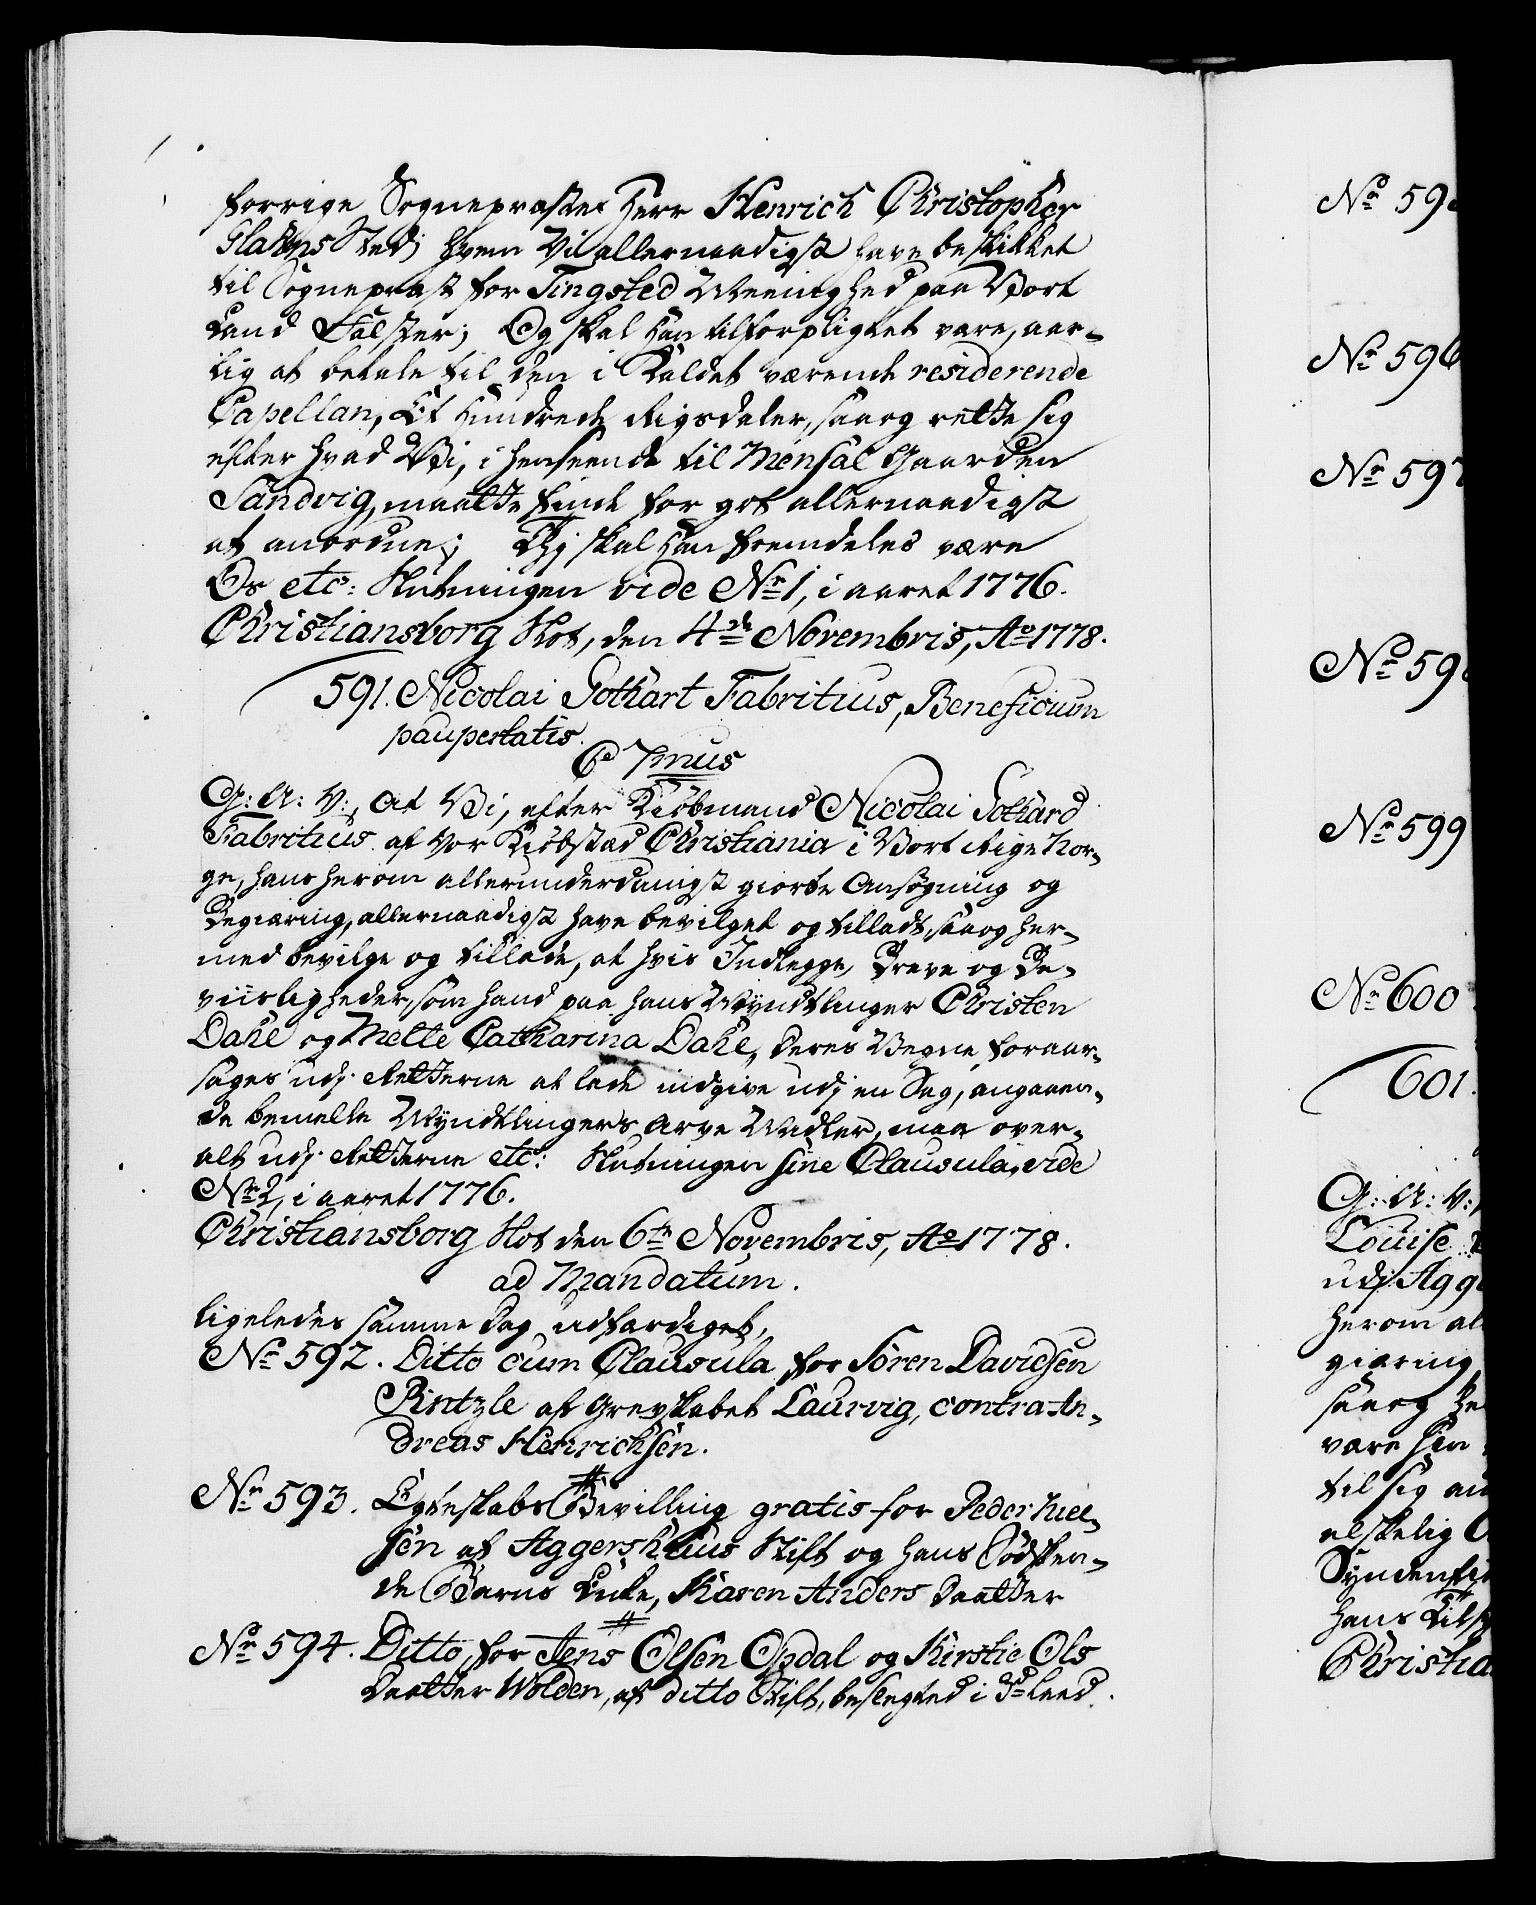 forrige Sognepræster Herr Henrich Christopher
Glahns Sted, hvem Vi allernaadigst have beskikket
til Sognepræst for Tingsted Meenighed paa Vort
Land Falster; Og skal han tilforpligtet være, aar-
lig at betale til den i Kaldet værende residerende
Capellan, Et Hundrede Rigsdaler, saa og rette sig
efter hvad Vi, i henseende til Mensal Gaarden
Sandvig, maatte finde for got allernaadigst
at anordne; Thj skal han fremdeles være
Os etc: Slutningen vide Nr 1, i aaret 1776.
Christiansborg Slot, den 4de Novembris, Ao 1778.
591. Nicolai Gothart Fabritius, Beneficium
paupertatis.
C 7mus
G: A: V:, At Vi, efter Kiøbmand Nicolai Gothard
Fabritius af Vor Kiøbstad Christiania i Vort Rige Nor-
ge, hans herom allerunderdanigst giorte Ansøgning og
Begiæring, allernaadigst have bevilget og tilladt, saa og her-
med bevilge og tillade, at hvis Indlegge, Breve og Be-
viisligheder, som hand paa hans Myndtlinger Christen
Dahl og Mette Catharina Dahl, deres Vegne foraar-
sages udj Retterne at lade indgive udj en Sag, angaaen-
de bemelte Myndtlingers Arve Midler, maa over-
alt udj Retterne etc: Slutningen sine Clausula, vide
Nr 2, i aaret 1776.
Christiansborg Slot den 6te Novembris, Ao 1778.
ad Mandatum.
ligeledes samme Dag udfærdiget,
Nr 592. Ditto cum Clausula for Sören Davidsen
Rintzle af Grevskabet Laurvig, contra An-
dreas Henrichsen.
Nr 593. Egteskabs Bevilling gratis for Peder Niel-
sen af Aggershuus Stift og hans Sødsken-
de Barns Enke, Karen Anders Daatter
Nr 594. Ditto, for Jens Olsen Opdal og Kirstie Ols
Daatter Wolden, af ditto Stift, beslegted i 3d Leed.
Nr 59
Nr 596
Nr 597
Nr 59
Nr 599
Nr 600
601.
G: A: V:,
Louise
udj Agge
herom al
giæring
saa og he
være sin
til sig an
elskelig
Synden
hans
Christia